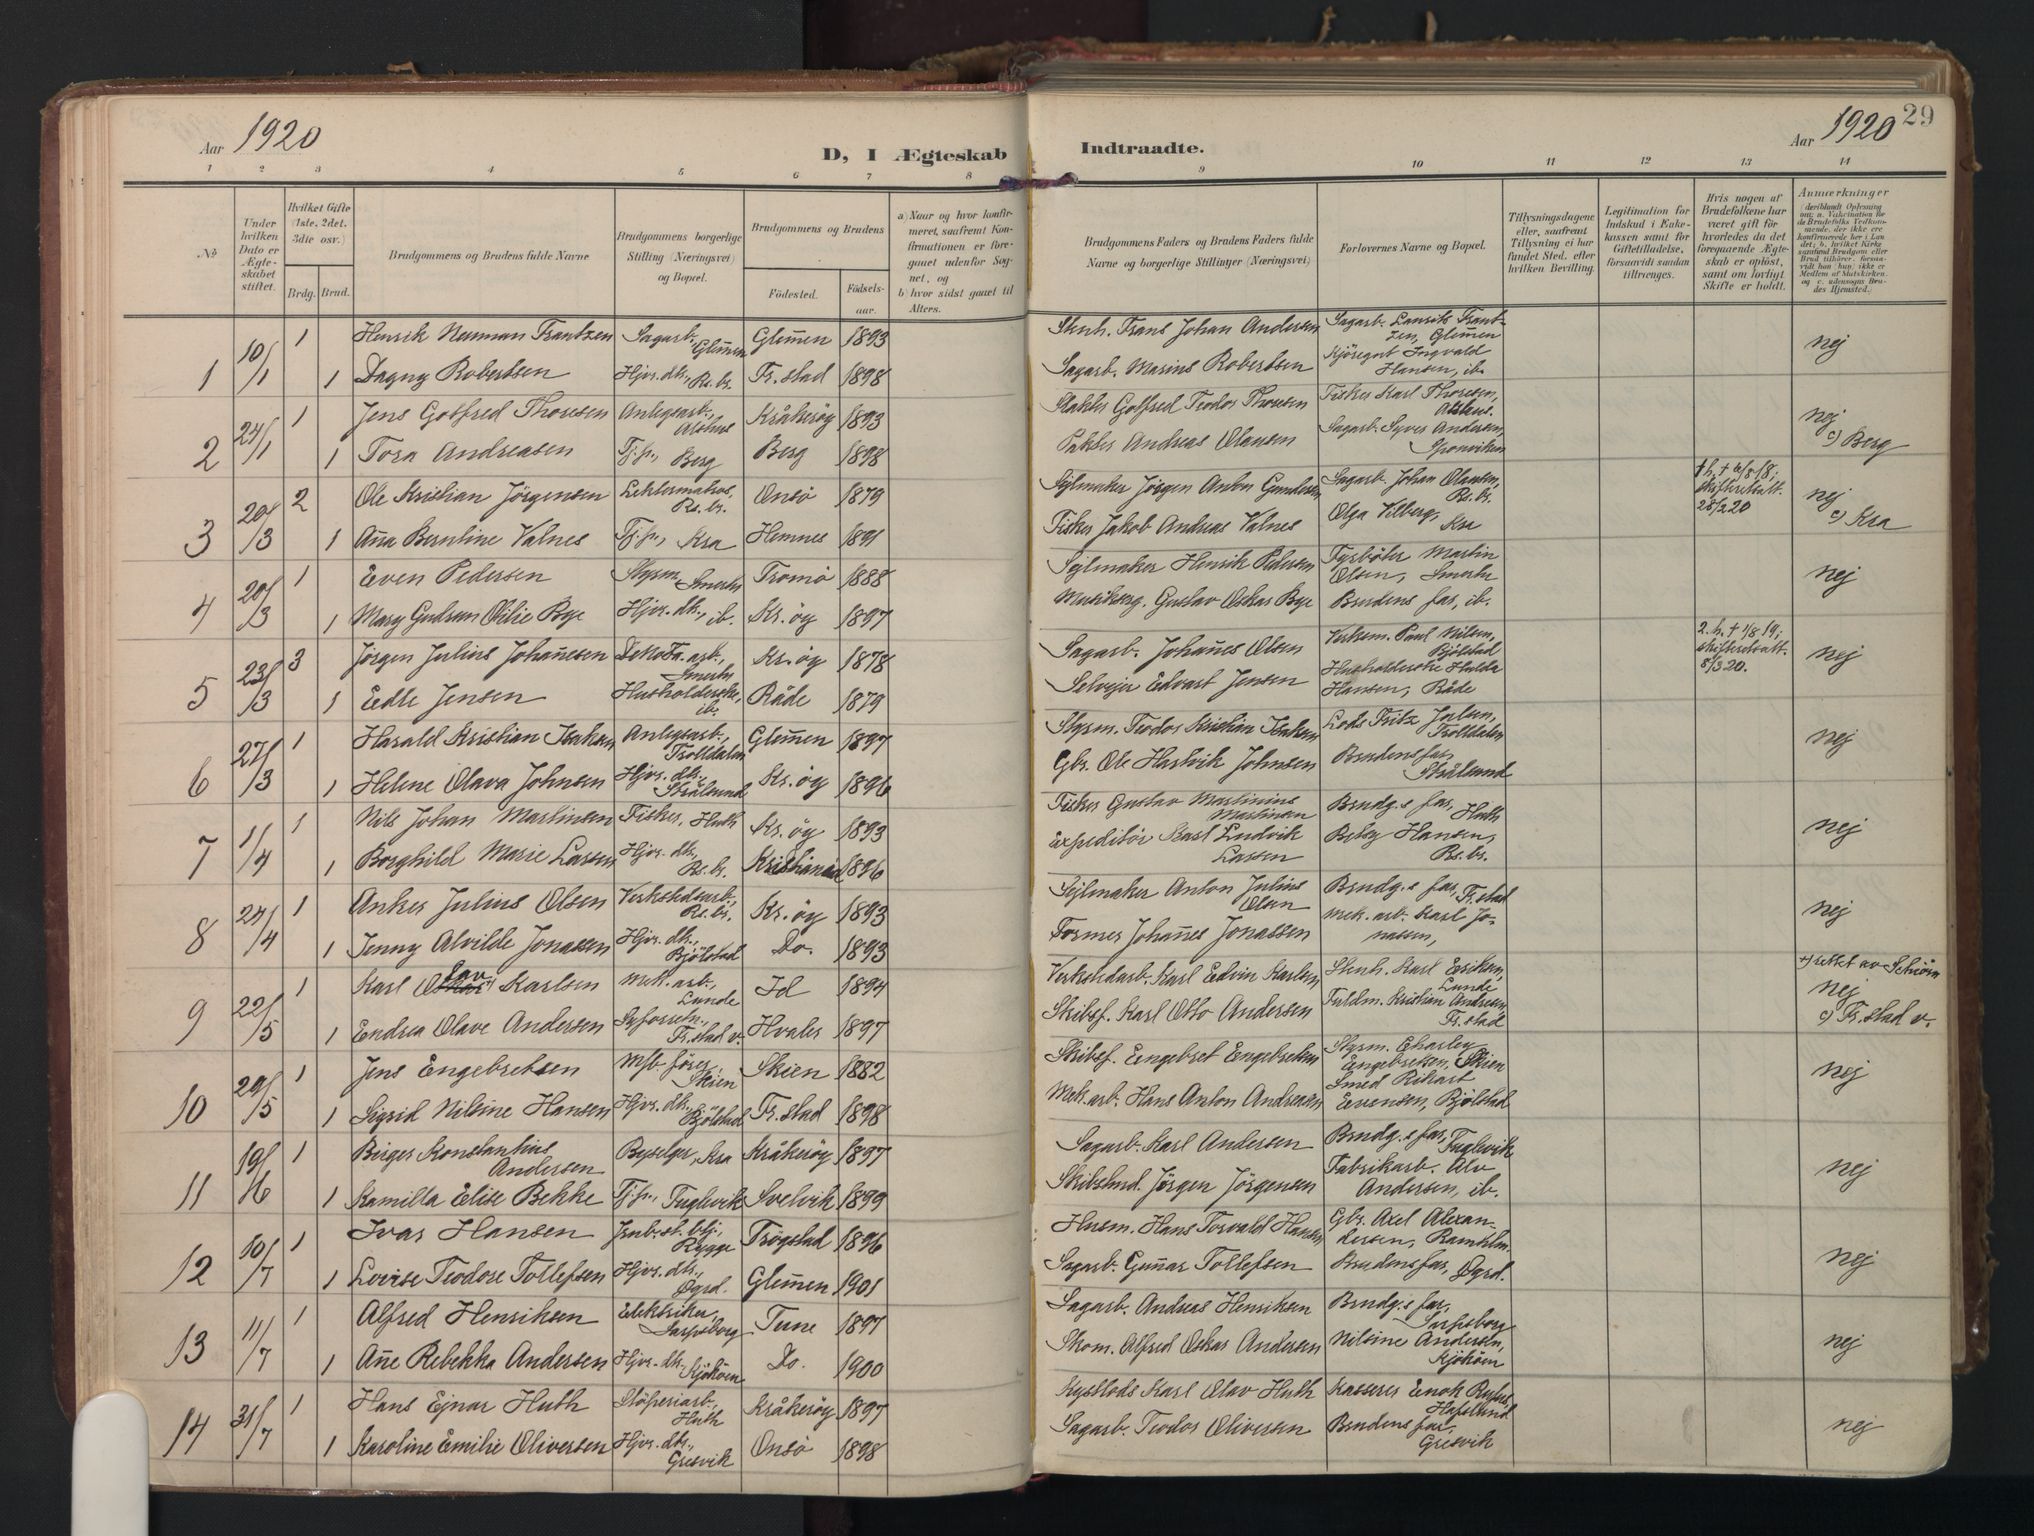 Aar 1920
D, I Ægteskab Indtraadte.
Aar 1920 29
1 2 3 4 5 6 7 8 9 10 11 12 13 14
No
Under hvilken Dato er Ægteskabet stiftet.
Hvilket Gifte (1ste, 2det, 3die osv.)
Brdg. Brud.
Brudgommens og Brudens fulde Navne
Brudgommens borgerlige Stilling (Næringsvei) og Bopæl.
Brudgommens og Brudens
Fødested. Fødselsaar.
a) Naar og hvor konfirmeret, saafremt Konfirmationen er foregaaet udenfor Sognet, og
b) hvor sidst gaaet til Alters.
Brudgommens Faders og Brudens Faders fulde Navne og borgerlige Stillinger (Næringsvei)
Forlovernes Navne og Bopæl.
Tillysningsdagene eller, saafremt Tillysning ei har fundet Sted, efter hvilken Bevilling.
Legitimation for Indskud i Enkekassen samt for Giftetilladelse, forsaavidt saadan tiltrænges.
Hvis nogen af Brudefolkene har været gift før hvorledes da det foregaaende Ægteskab er opløst, samt om lovligt Skifte er holdt.
Anmærkninger
1 10/1 1 Henrik Neuman Frantzen Sagarb., Glem̄en Glem̄en 1893 Stenh. Frans Johan Andersen Sagarb. Laurits Frantzen, Glem̄en nej
1 Dagny Robertsen Hjvr. dtr., Rs. br. Fr.stad 1898 Sagarb. Marius Robertsen Kjöregut Ingvald Hansen, ib.
2 24/1 1 Jens Gotfred Thoresen Anlegsarb., Alshus Kråkeröy 1893 Gotfred Teodor Thoresen Fisker Karl Thoresen, Alshus. nej
1 Tora Andreasen Tj.p., Berg Berg 1898 Andreas Olausen Sagarb. Syver Andersen, Sponviken c) Berg
3 20/3 2 Ole Kristian Jörgensen Rs. br. Onsö 1879 Sejlmaker Jörgen Anton Gundersen Sagarb. Johan Olausen, Rs. br. nej
1 An̄a Berntine Valnes Tj.p., Kra Hemnes 1891 Fisker Jakob Andreas Valnes Olga Vilberg, Kra c) Kra
4 20/3 1 Even Pedersen Styrm., Smertu Tromö 1888 Sejlmaker Henrik Pedersen Fyrböter Martin Olsen, Smertu nej
1 Mary Gudrun Otilie Bye Hjvr. dtr., ib. Kr.öy 1897 Gustav Oskar Bye Brudens far, ib.
5 23/3 3 Jörgen Julius Johan̄esen Smertu Kr.öy 1878 Sagarb. Johan̄es Olsen Verksm. Paul Nilsen, Bjölstad 2. h. † 1/8 19; skifteretsatt. 5/3 20. nej
1 Edle Jensen Husholderske, ib. Råde 1879 Selvejer Edvart Jensen Husholderske Hulda Hansen, Råde
6 27/3 1 Harald Kristian Isaksen Anlegsarb., Trolldalen Glem̄en 1897 Styrm. Teodor Kristian Isaksen Lods Fritz Julsen, Trolldalen nej
1 Helene Olava Johnsen Hjvr. dtr., Strålsund Kr.öy 1896 Gbr. Ole Hartvik Johnsen Brudens far, Strålsund
7 1/4 1 Nils Johan Martinsen Fisker, Huth Kr.öy 1893 Fisker Gustav Martinius Martinsen Brudg.s far, Huth nej
1 Borghild Marie Larsen Hjvr. dtr., Rs. br. 1896 Expeditör Karl Ludvik Larsen Hansen, Rs. br.
8 24/4 1 Anker Julius Olsen Verkstedsarb., Rs. br. Kr.öy 1893 Sejlmaker Anton Julius Olsen Brudg.s far, Fr.stad nej
1 Jenny Alvilde Jonassen Hjvr. dtr., Bjölstad Do. 1893 Former Johan̄es Jonassen mek. arb. Karl Jonassen,
9 22/5 1 Karl Olav Karlsen mek. arb., Lunde Id 1894 Verkstedarb. Karl Edvin Karlsen Stenh. Karl Eriksen, Lunde nej
1 Endrea Olave Andersen Fr.stad v. Hvaler 1897 Skibsf. Karl Otto Andersen Fuldm. Kristian Andersen, Fr.stad c) Fr.stad v.
10 29/5 1 Jens Engebretsen Skien Skien 1882 Skibsf. Engebret Engebretsen Styrm. Charley Engebretsen, Skien nej
1 Sigrid Nilsine Hansen Hjvr. dtr., Bjölstad Fr.stad 1898 Mek. arb. Hans Anton Andreasen Smed Rikart Evensen, Bjölstad
11 19/6 1 Birger Konstantius Andersen Kra Kråkeröy 1897 Sagarb. Karl Andersen Brudg.s far, Fuglevik nej
1 Kamilla Elise Bekke Tj.p., Fuglevik Svelvik 1899 Jörgen Jörgensen Fabrikarb. Alv Andersen, ib.
12 10/7 1 Ivar Hansen Rygge Trögstad 1896 Husm. Hans Torvald Hansen Gbr. Axel Alexandersen, nej
1 Lovise Teodore Tollefsen Hjvr. dtr., Øgrd. Glem̄en 1901 Sagarb. Gun̄ar Tollefsen Brudens far, Øgrd.
13 11/7 1 Alfred Henriksen Elektriker, Sarpsborg Tune 1897 Sagarb. Andreas Henriksen Brudg.s far, Sarpsborg nej
1 An̄e Rebekka Andersen Hjvr. dtr., Kjököen Do. 1900 Skom. Alfred Oskar Andersen Nilsine Andersen, Kjököen
14 31/7 1 Hans Ejnar Huth Stöperiarb., Huth Kråkeröy 1897 Kystlods Karl Olav Huth Kasserer Enok Hafslund nej
1 Karoline Emilie Oliversen Hjvr. dtr., Gresvik Onsö 1898 Sagarb. Teodor Oliversen Brudens far, Gresvik